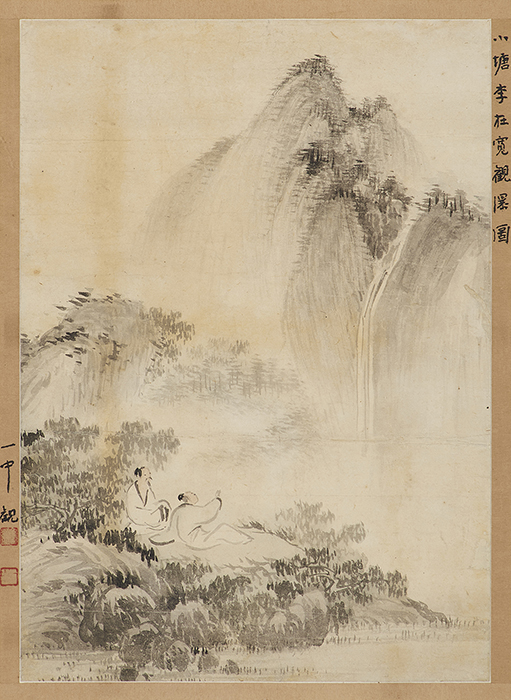 小塘李在寬觀瀑圖
一中觀